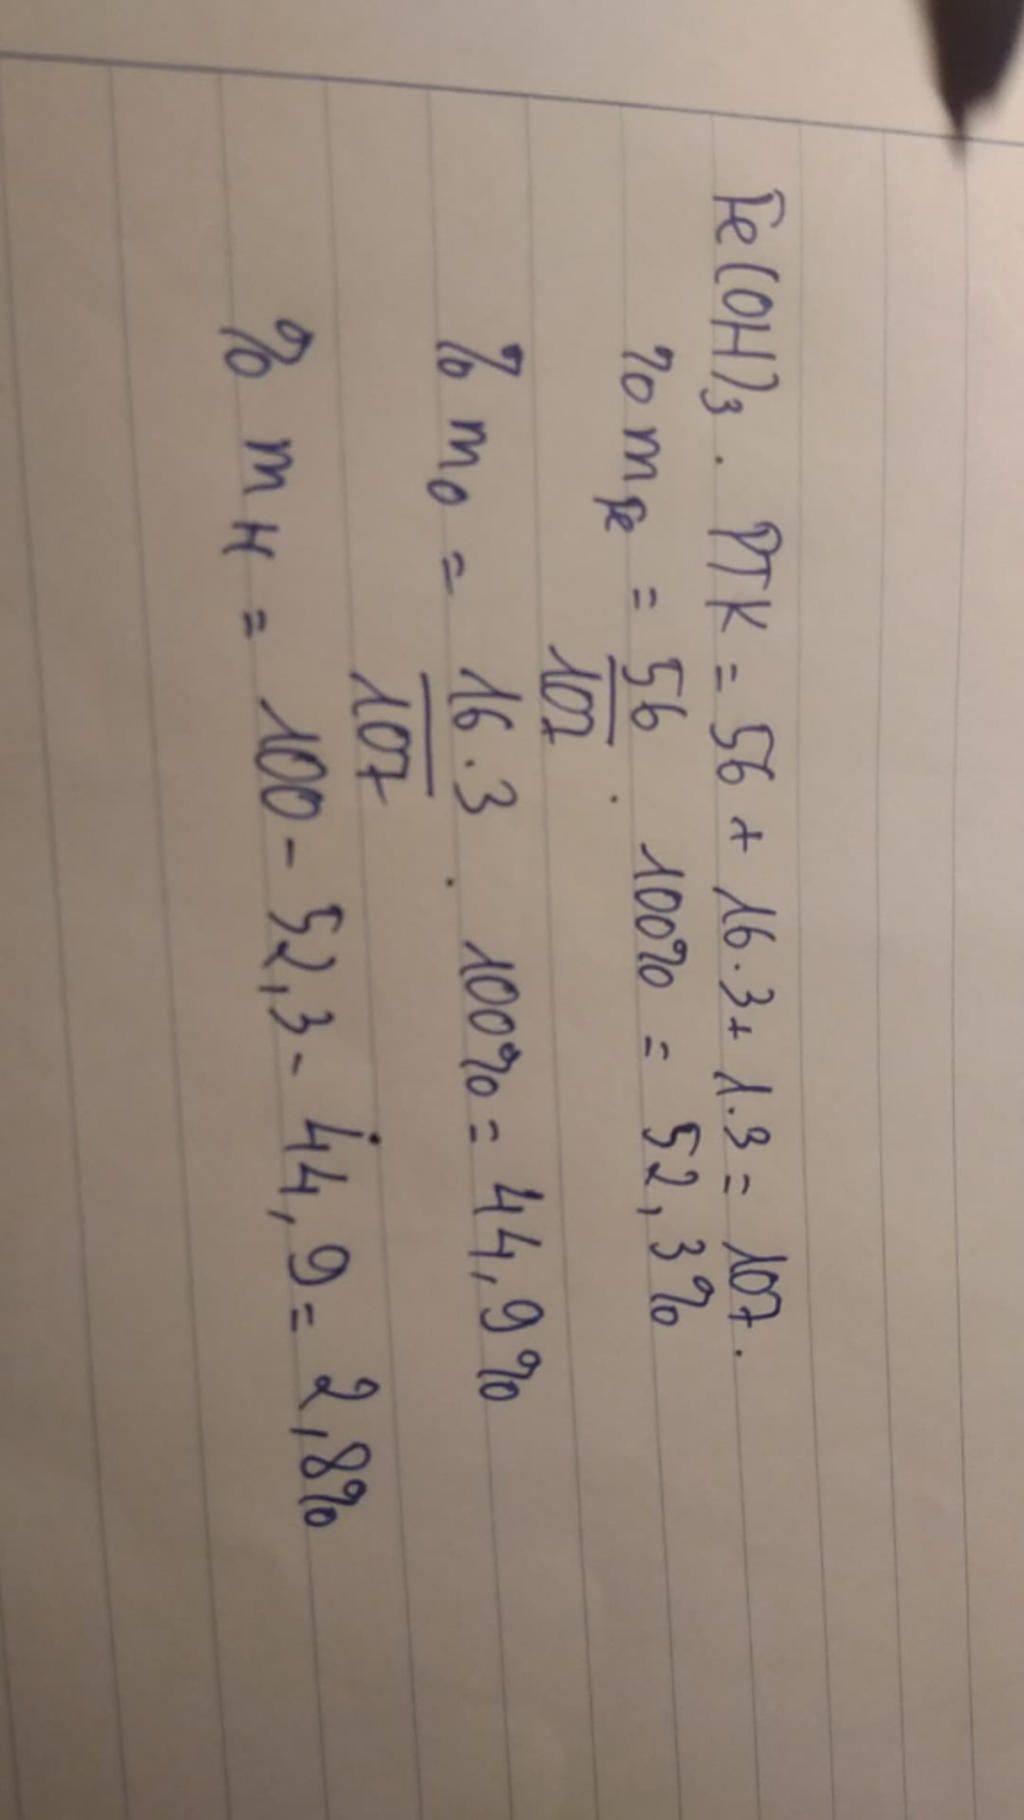 Fe(OH)3. PTK = 56 + 16.3+ 1.3 = 107.
% mFe = 56/107 . 100% = 52,3%
% mO = 16.3/107 . 100% = 44,9%
% mH = 100 - 52,3 - 44,9 = 2,8%